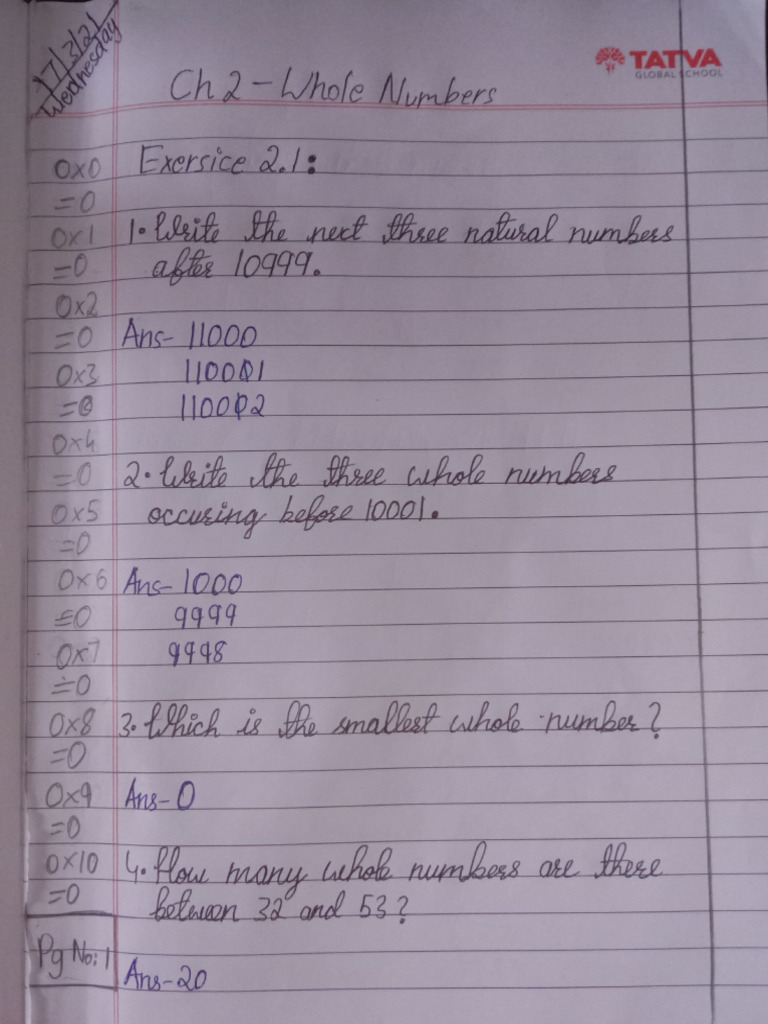 17/3/21
Wednesday
TATVA
GLOBAL SCHOOL
Ch 2 - Whole Numbers
0x0
=0
0x1
=0
0x2
=0
0x3
=0
0x4
=0
0x5
=0
0x6
=0
0x7
=0
0x8
=0
0x9
=0
0x10
=0
Pg No: 1
Exersice 2.1:
1. Write the next three natural numbers
after 10999.
Ans- 11000
11001
11002
2. Write the three whole numbers
occuring before 10001.
Ans- 1000
9999
9998
3. Which is the smallest whole number?
Ans- 0
4. How many whole numbers are there
between 32 and 53?
Ans- 20